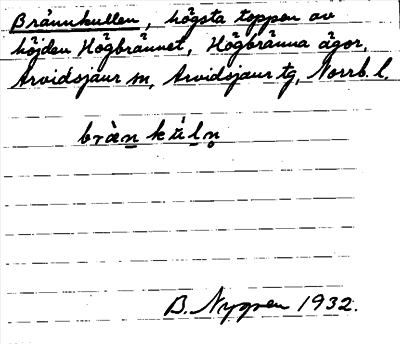 Brännkullen, högsta toppen av
höjden Högbrännet, Högbränna ägor,
Arvidsjaur sn, Arvidsjaur tg, Norrb. l.
brä̀n kúln̥
B. Nygren 1932.